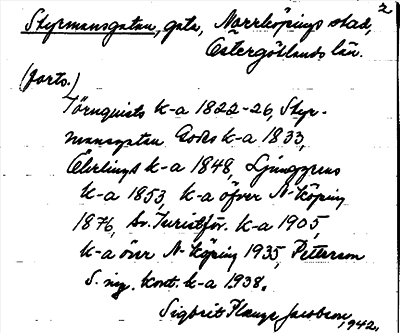 2
Styrmansgatan, gata, Norrköpings stad,
Östergötlands län.
(forts.)
Törnquists k-a 1822-26, Styr-
mansgatan Godes k-a 1833,
Öhrlings k-a 1848, Ljunggrens
k-a 1853, k-a öfver N-köping
1876, Sv. Turistför. k-a 1905,
k-a över N-köping 1935, Peterson
S. ing. kont. k-a 1938.
Sigbrit Jacobson, 1942.